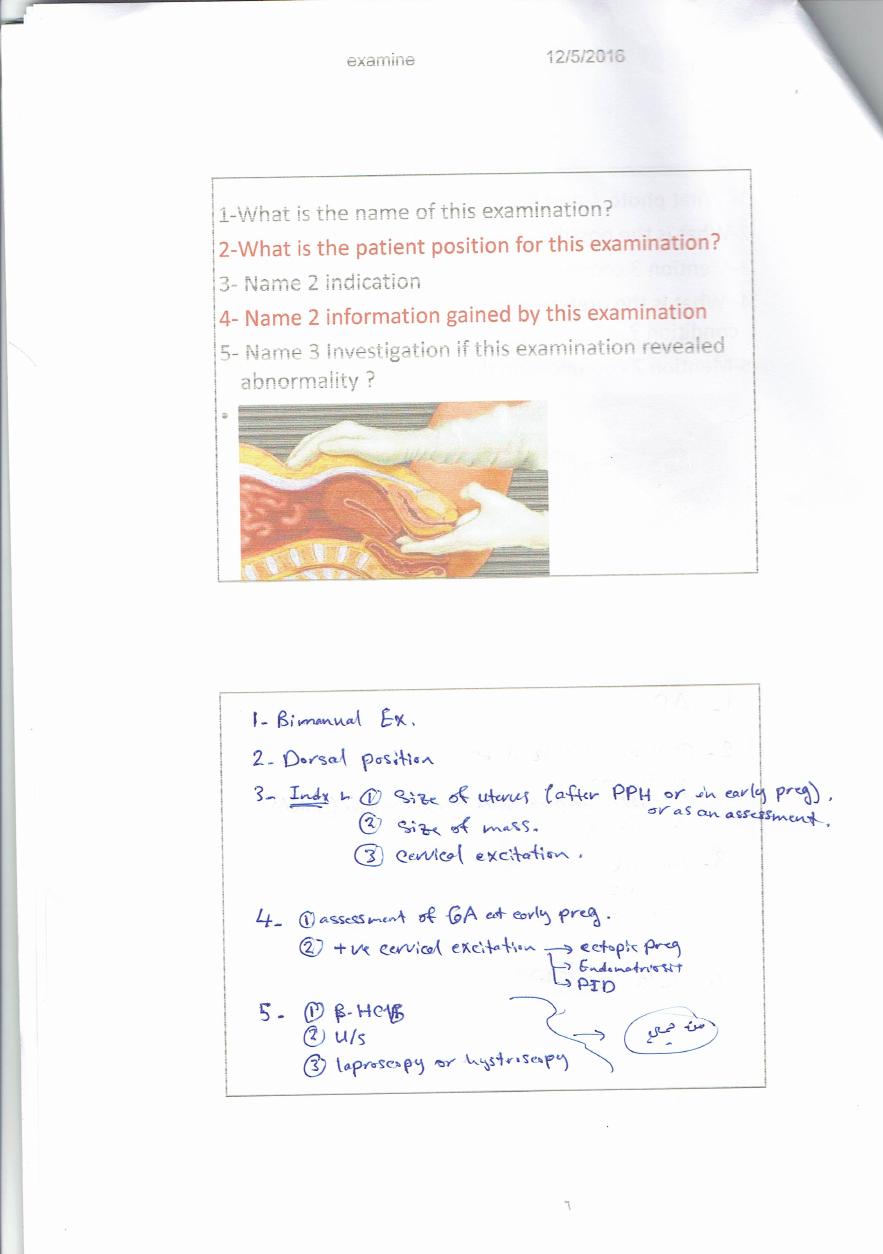 examine 12/5/2016
1-What is the name of this examination?
2-What is the patient position for this examination?
3- Name 2 indication
4- Name 2 information gained by this examination
5- Name 3 Investigation if this examination revealed
abnormality ?
1- Bimanual Ex.
2- Dorsal position
3- Indx ① Size of uterus (after PPH or in early preg),
or as an assessment.
② Size of mass.
③ Cervical excitation.
4- ① assessment of GA at early preg.
② +ve cervical excitation → ectopic preg
↳ Endometriosit
↳ PID
5- ① β-HCG
② U/s
③ laproscopy or hystroscopy
٦